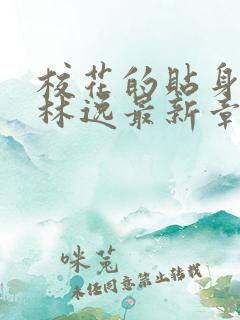 校花的贴身
林逸最新章
咪兔
未经同意禁止转载